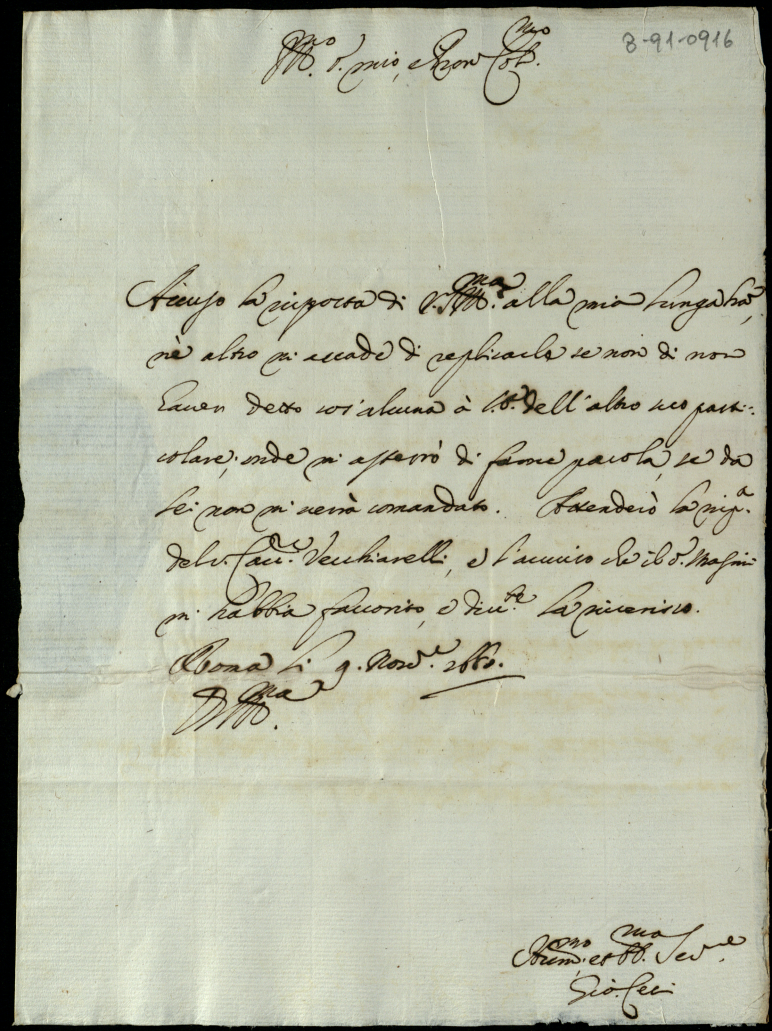 8-91-0916
Ill.mo S. mio, e Pron Col.mo
Accuso la risposta di V.S. Ill.ma alla mia lunga l'ra,
nè altro mi accade di replicarle se non di non
haver detto cos'alcuna à S.S. dell'altro suo parti-
colare; onde mi asterrò di farne parola, se da
lei non mi verrà comandato. Attenderò la risp.a
del S. Cav.re Vecchiarelli, e l'avviso che il S. Masini
mi habbia favorito, e div.te la riverisco.
Roma li 9. Nov.e 1660.
V.S. Ill.ma
Hum.mo et Obb.mo Ser.re
Gio. Ceci